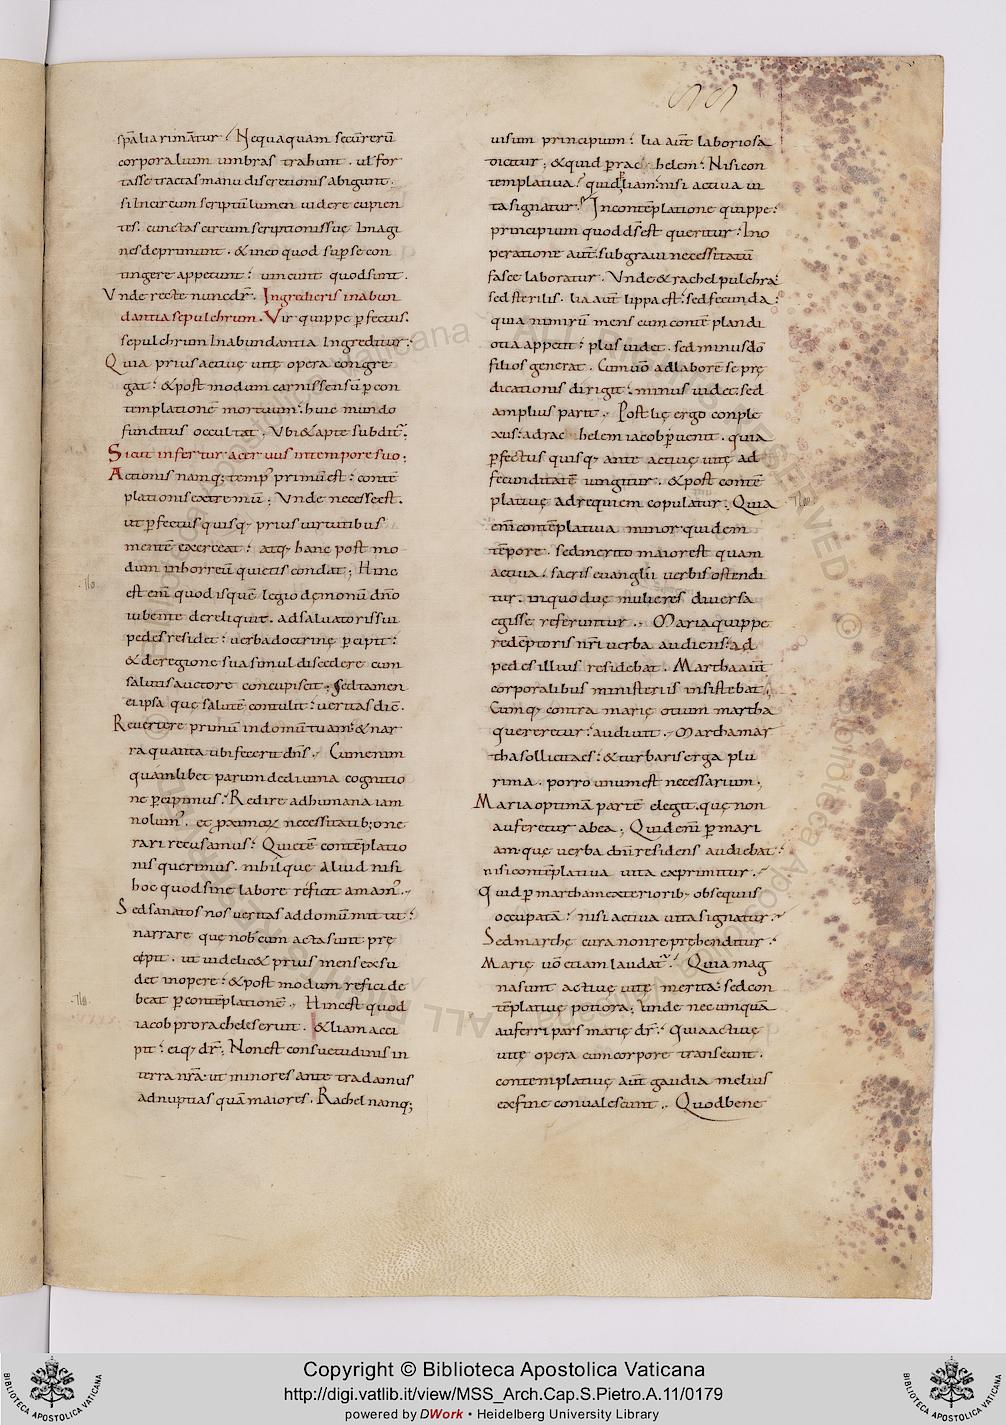 55
sp̄alia rimant̄ur. Nequaquam secū rerū
corporalium umbras trahunt. ul for
tasse tractas manu discretionis abigunt.
si Incircum scriptū lumen uidere cupien
tes. cunctas circumscriptionis suę Imagi
nes deprimunt. & in eo quod sup̄ se con
tingere appetunt: uincunt quod sunt.
Vnde recte nunc dr̄. Ingredieris in abun
dantia sepulchrum. Vir quippe ꝑfectus.
sepulchrum In abundantia Ingreditur.
Quia prius actiuę uitę opera congre
gat: & post modum carnis sensū ꝑ con
templationē mortuum. huic mundo
funditus occultat. Vbi & apte subdit̄.
Sicut infertur aceruus in tempore suo;
Actionis namq; temp᷒ primū est: contē
plationis extremū; Vnde necesse est.
ut ꝑfectus quisq; prius uirtutibus
mentē exerceat: atq; hanc post mo
dum in horreū quietis condat; Hinc
est eni᷒ quod is quē legio dęmonū dn̄o
iubente dereliquit. ad saluatoris sui
pedes residet: uerba doctrinę ꝑcipit:
& de regione sua simul discedere cum
salutis auctore concupiscit; Sed tamen
ei ipsa quę salutē contulit: ueritas dic̄.
Reuertere primū in domū tuam: & nar
ra quanta tibi fecerit dn̄s. Cum enim
quamlibet parum de diuina cognitio
ne ꝑcipimus. Redire ad humana iam
nolum᷒. et proximorum necessitatib; one
rari recusamus: Quietē contēplatio
nis querimus. nihilque aliud nisi
hoc quod sine labore reficit amam᷒.
Sed sanatos nos ueritas ad domū mittit:
narrare que nob̄ cum acta sunt pre
cępit. ut uidelic& prius mens exsu
det in opere: & post modum refici de
beat ꝑ contēplationē. Hinc est quod
iacob pro rachel deseruit. & liam acci
pit: eiq; dr̄; Non est consuetudinis in
terra nr̄a. ut minores ante tradamus
ad nuptias quā maiores. Rachel namq;
uisum principium: lia aut̄ laboriosa
dicitur; & quid ꝑ rachelem: Nisi con
templatiua? quid ꝑ liam: nisi actiua ui
ta signatur. In contēplatione quippe:
principium quod d̄s est queritur: In o
peratione aut̄: sub graui necessitatū
fasce laboratur. Vnde & rachel pulchra
sed sterilis. lia aut̄ lippa est: sed fecunda:
quia nimirū mens cum contēplandi
otia appetit: plus uidet. sed minus dō
filios generat. Cum uō ad laborē se prę
dicationis dirigit: minus uidet. sed
amplius parit. Post lię ergo comple
xus: ad rachelem iacob ꝑuenit. quia
ꝑfectus quisq; ante actiuę uitę ad
fecunditatē iungitur. & post contē
platiuę ad requiem copulatur. Quia
eni᷒ contēplatiua minor quidem
tēpore. sed merito maior est quam
actiua. sacris euanglii uerbis ostendi
tur. in quo duę mulieres diuersa
egisse referuntur. Maria quippe
redēptoris nr̄i uerba audiens: ad
pedes illius residebat. Martha aut̄
corporalibus ministeriis insistebat.
Cumq; contra marię otium martha
quereretur: audiuit. Martha mar
tha sollicita es: & turbaris erga plu
rima. porro unum est necessarium.
Maria optimā partē elegit. quę non
auferetur ab ea; Quid eni᷒ ꝑ mari
am. quę uerba dn̄i residens audiebat:
nisi contēplatiua uita exprimitur.
Quid ꝑ martham exteriorib; obsequiis
occupatā: nisi actiua uita signatur.
Sed marthę cura non reprehenditur.
Marię uō etiam laudat̄: Quia mag
na sunt actiuę uitę merita: sed con
tēplatiuę potiora; unde nec umquā
auferri pars marię dr̄: Quia actiuę
uitę opera cum corpore transeunt.
contemplatiuę aut̄ gaudia melius
ex fine conualescunt. Quod bene
Copyright © Biblioteca Apostolica Vaticana
http://digi.vatlib.it/view/MSS_Arch.Cap.S.Pietro.A.11/0179
powered by DWork • Heidelberg University Library
BIBLIOTECA APOSTOLICA VATICANA
BIBLIOTECA APOSTOLICA VATICANA